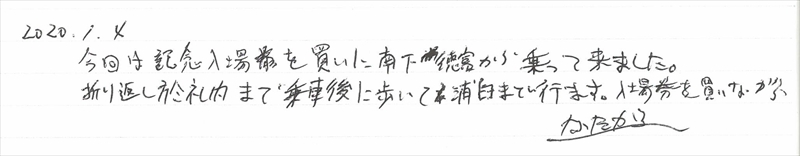 2020.1.4
今回は記念入場券を買いに南下徳富から乗って来ました。
折り返し於札内まで乗車後に歩いて浦臼まで行きます。入場券を買いながら